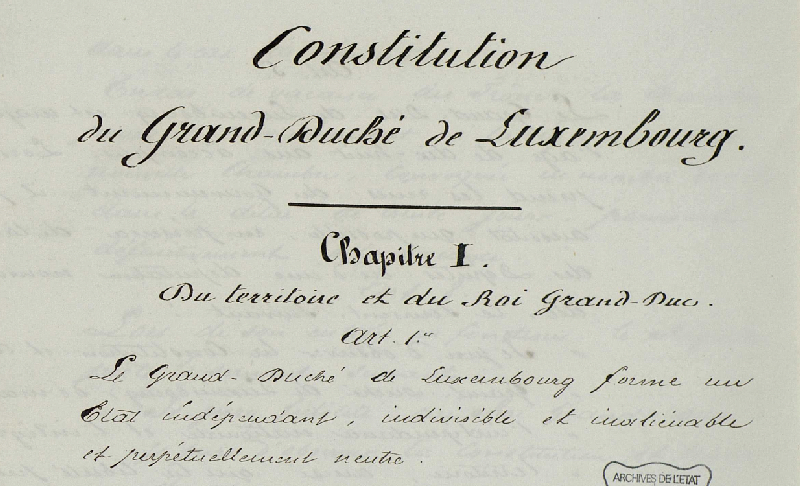 Constitution
du Grand-Duché de Luxembourg.
Chapitre I.
Du territoire et du Roi Grand-Duc.
Art. 1.er
Le Grand-Duché de Luxembourg forme un
Etat indépendant, indivisible et inaliénable
et perpétuellement neutre.
ARCHIVES DE L'ETAT